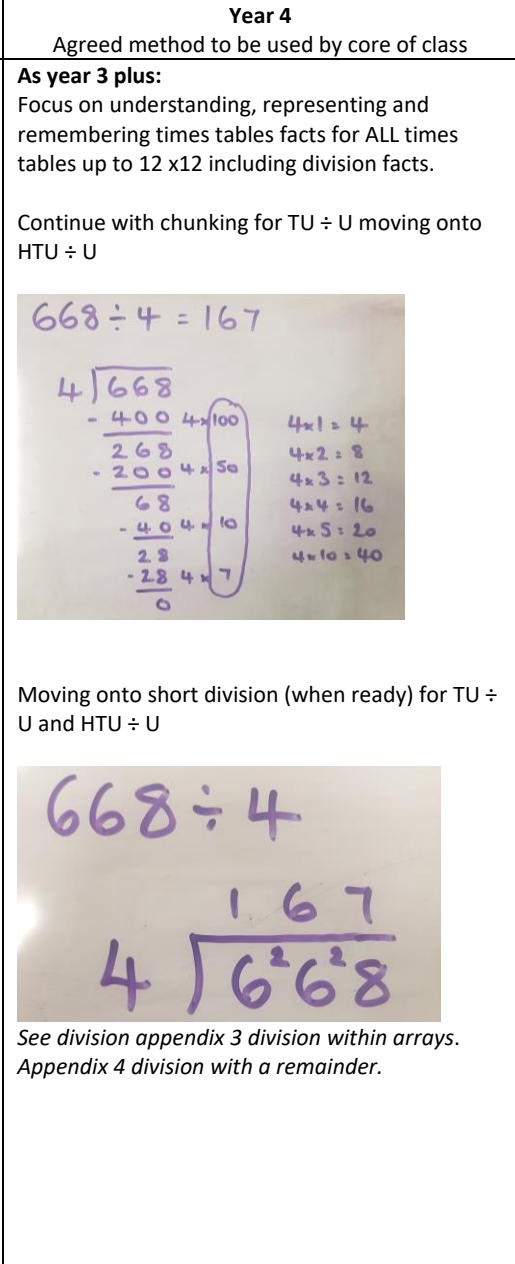 Year 4
Agreed method to be used by core of class
As year 3 plus:
Focus on understanding, representing and
remembering times tables facts for ALL times
tables up to 12 x12 including division facts.
Continue with chunking for TU ÷ U moving onto
HTU ÷ U
668 ÷ 4 = 167
4 668
- 400 4x100
268
- 200 4x50
68
- 40 4x10
28
- 28 4x7
0
4x1 = 4
4x2 = 8
4x3 = 12
4x4 = 16
4x5 = 20
4x10 = 40
Moving onto short division (when ready) for TU ÷
U and HTU ÷ U
668 ÷ 4
1 6 7
4 6²6²8
See division appendix 3 division within arrays.
Appendix 4 division with a remainder.